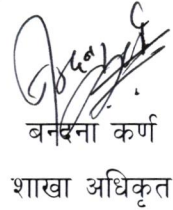 बनदना कर्ण
शाखा अधिकृत